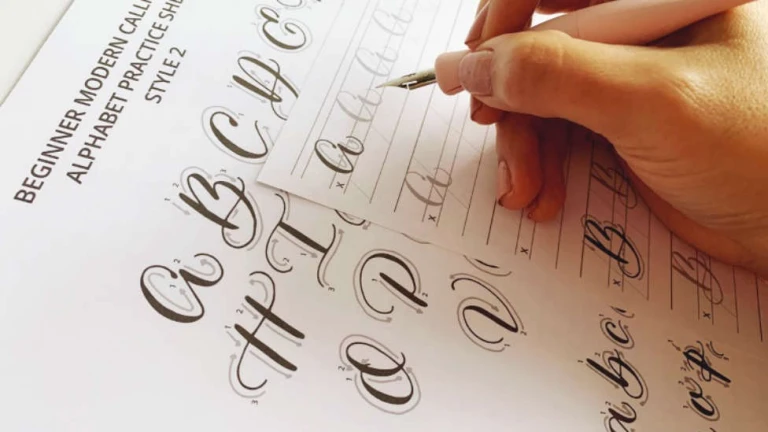 BEGINNER MODERN CALLI
ALPHABET PRACTICE SHE
STYLE 2
A B C D E
H I
O P
V
A A A A
A
B B
B
a b c
o p